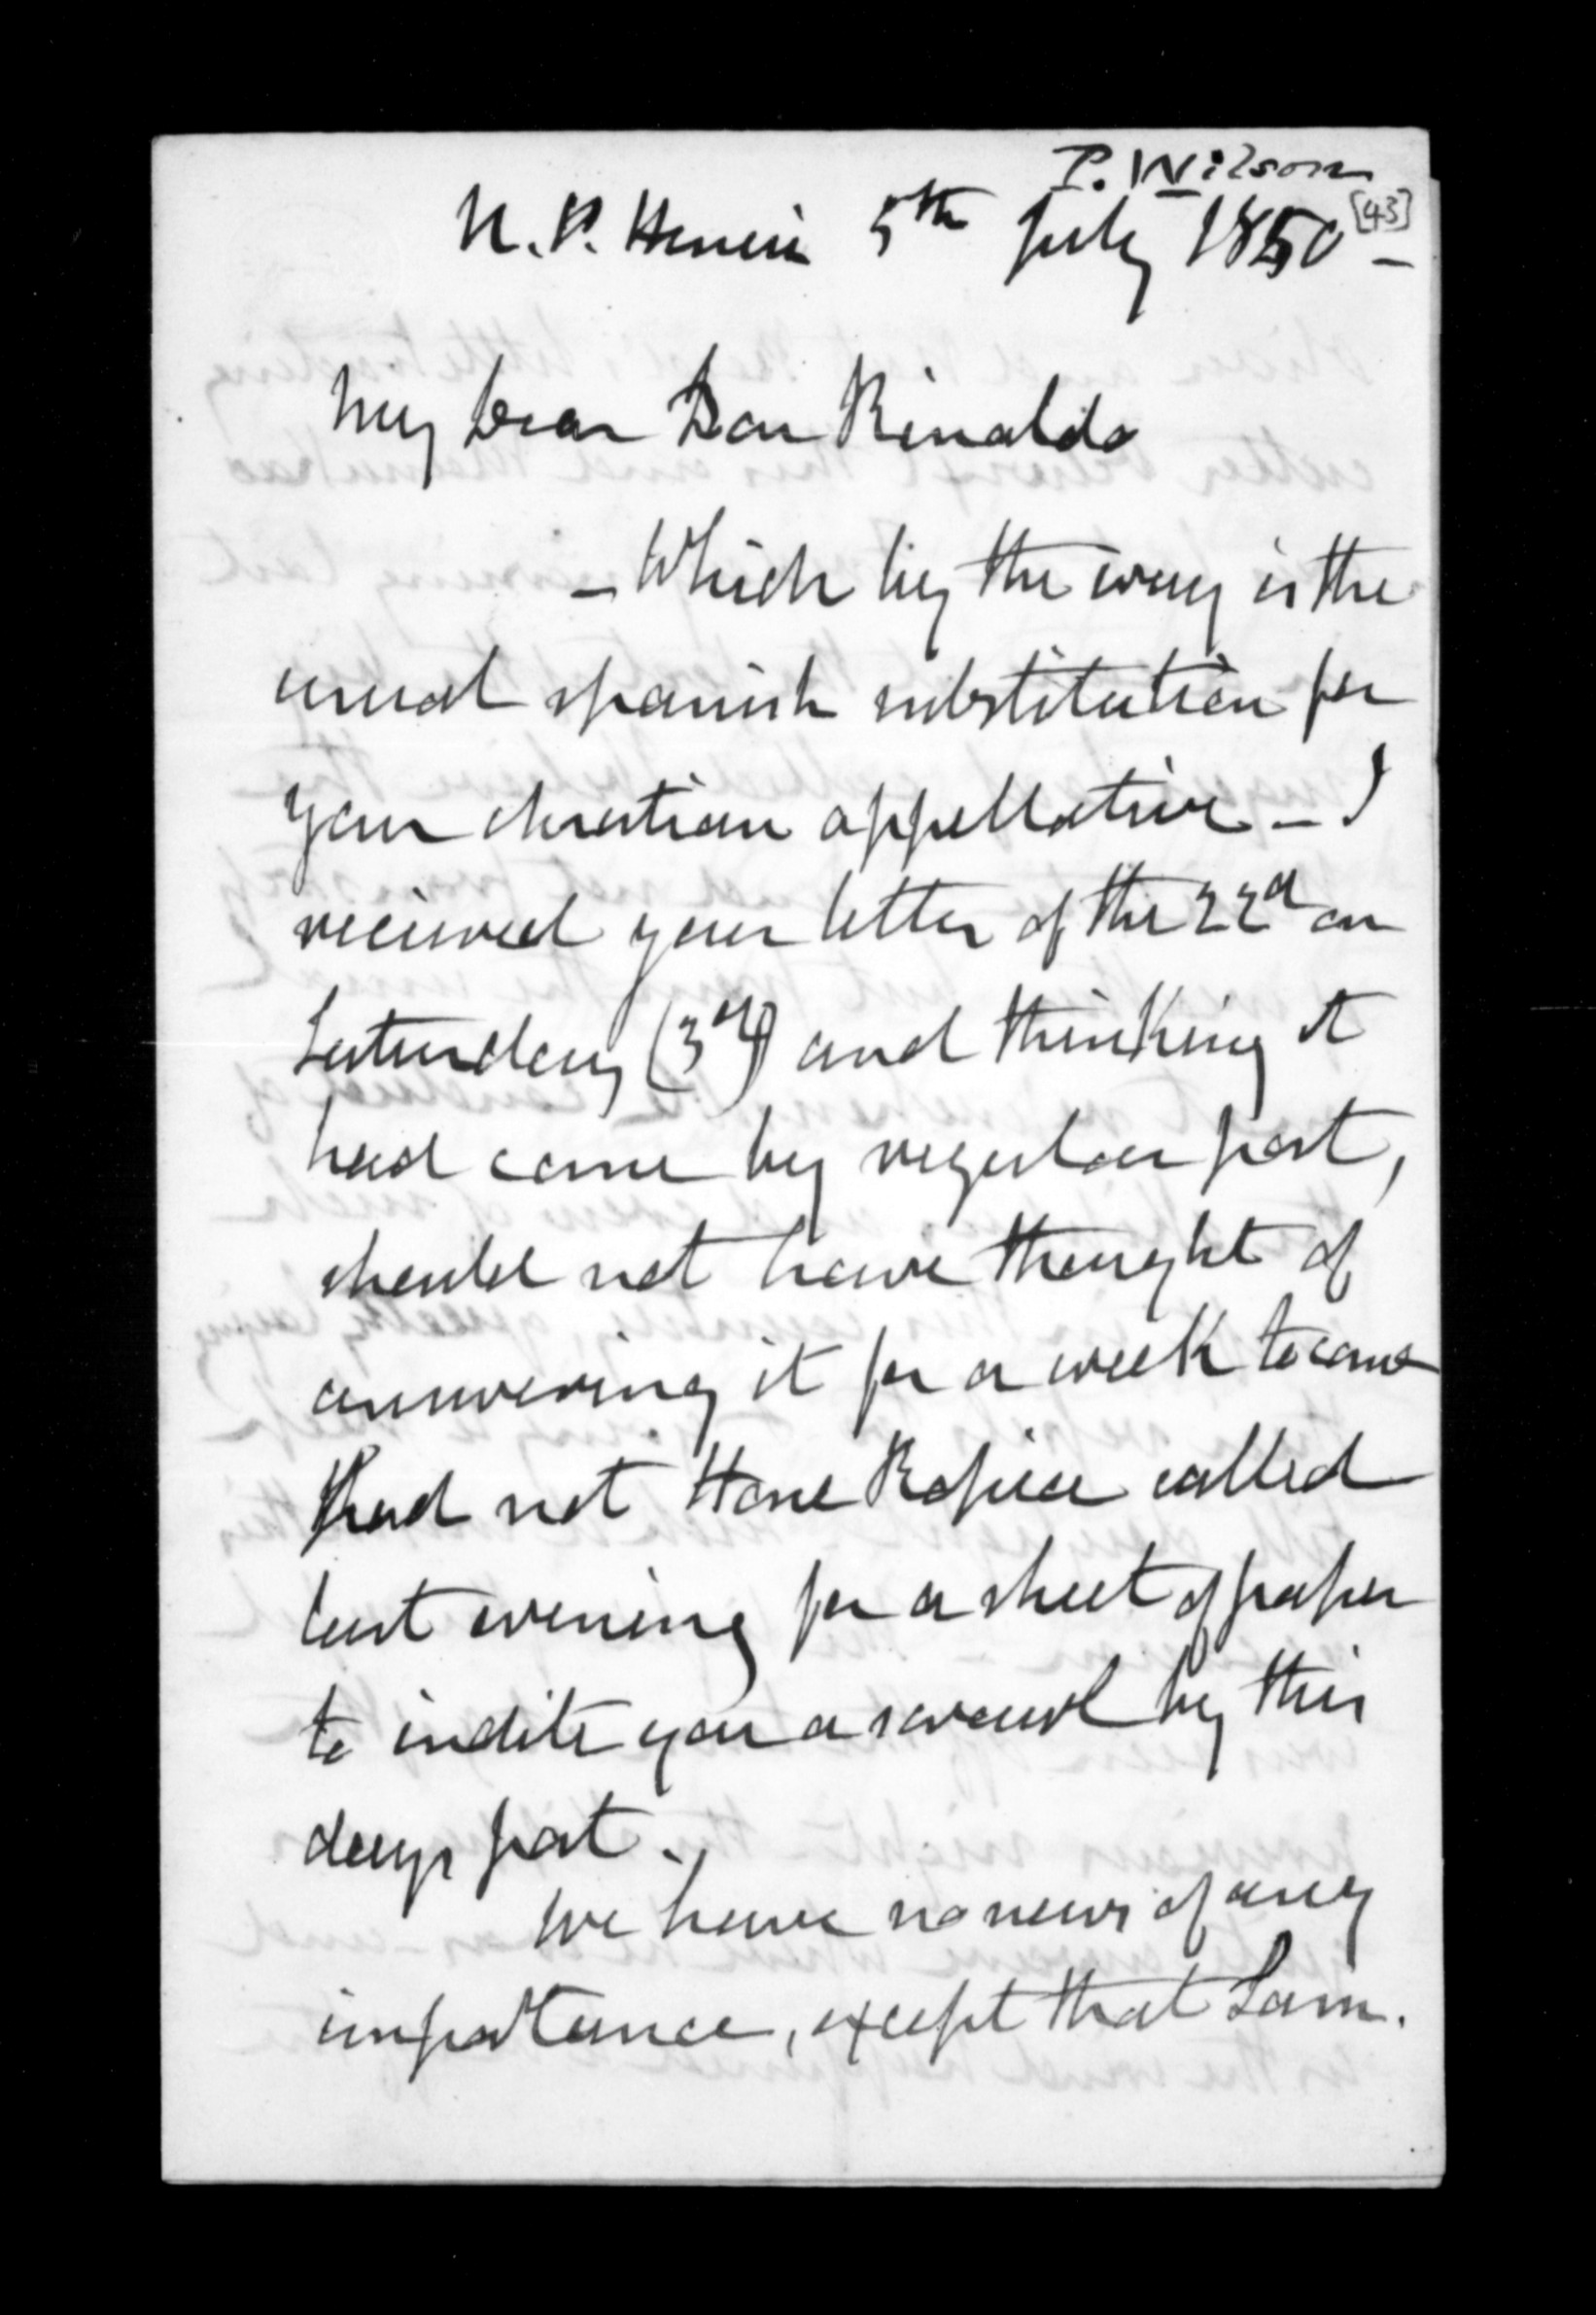 P. Wilson
[43]
N. P. Henui 5th July 1850 –
My Dear Don Rinaldo
– Which by the way is the
usual spanish substitution for
your christian appellative – I
received your letter of the 22d on
Saturday (3d) and thinking it
had come by regular post,
should not have thought of
answering it for a week to come
had not Hone Ropiha called
last evening for a sheet of paper
to indite you a scrawl by this
days post.
We have no news of any
importance, except that Sam.